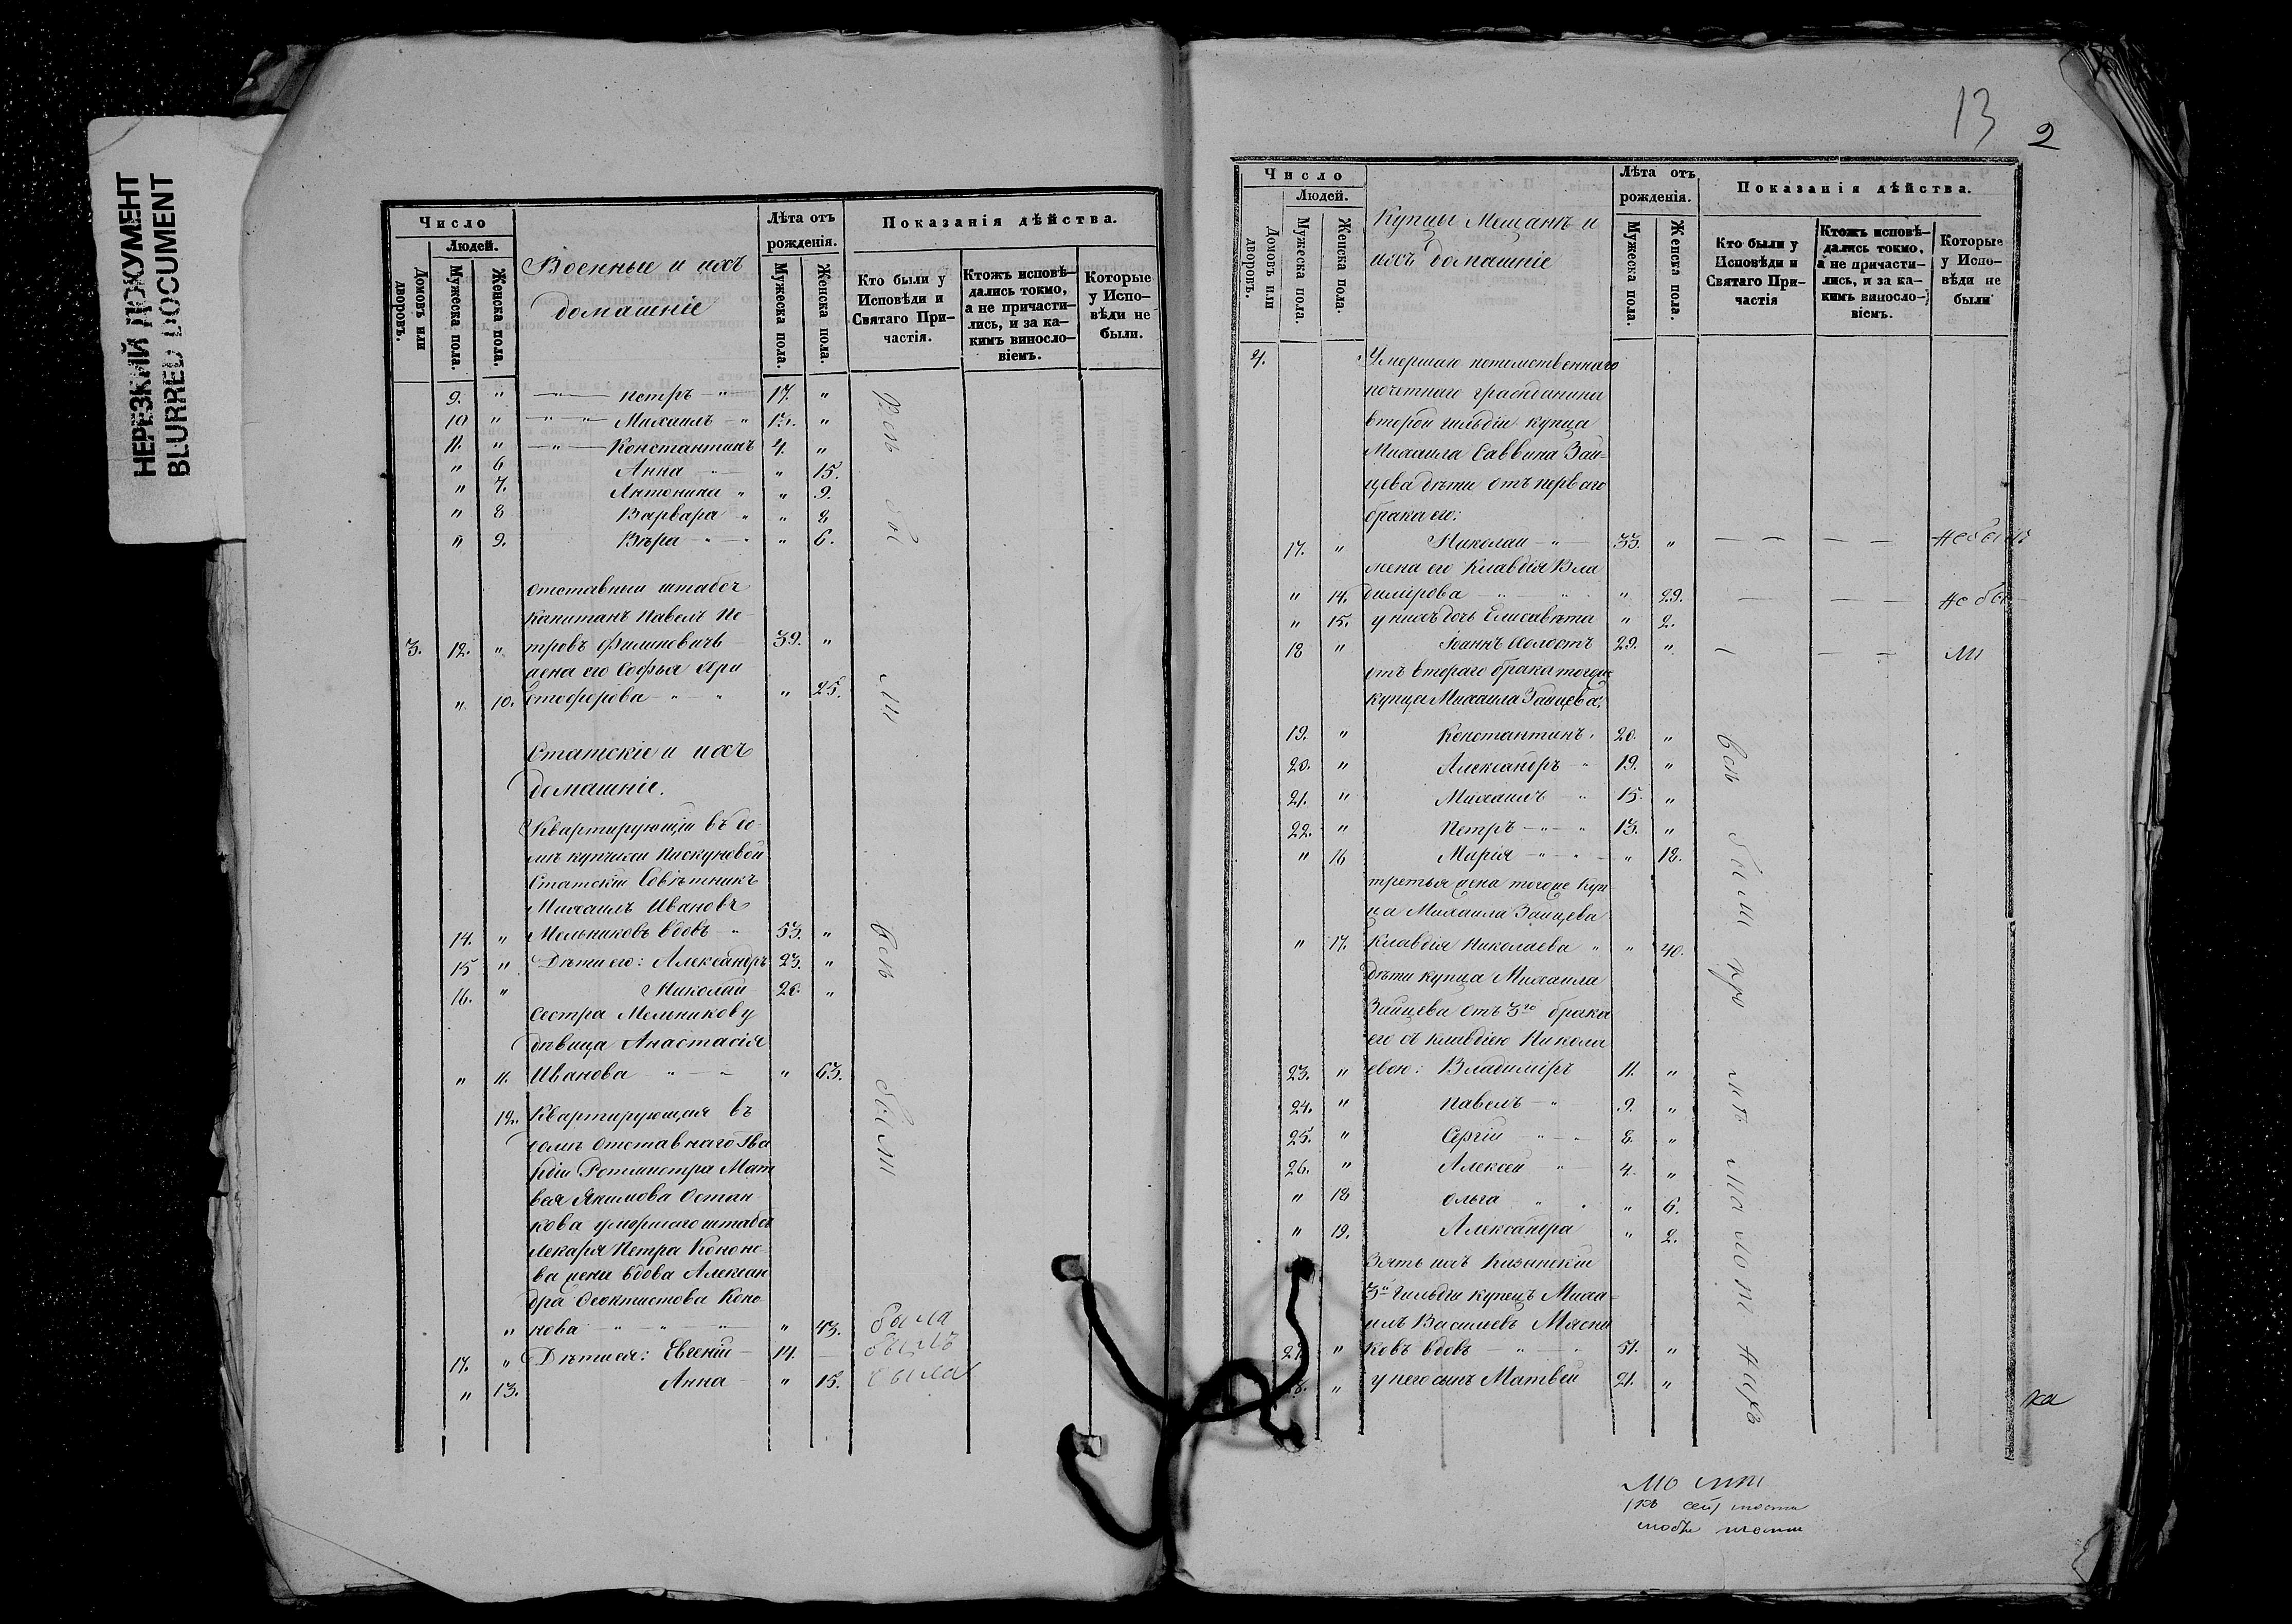 НЕРЕЗКИЙ ДОКУМЕНТ
BLURRED DOCUMENT
Число
Людей.
Домовъ или дворовъ.
Мужеска пола.
Женска пола.
Военные и ихъ
домашніе
Лѣта отъ
рожденія.
Мужеска пола.
Женска пола.
Показанія дѣйства.
Кто были у
Исповѣди и
Святаго При-
частія.
Ктожъ исповѣ-
дались токмо,
а не причасти-
лись, и за ка-
кимъ виносло-
віемъ.
Которые
у Испо-
вѣди не
были.
9. " Петръ 17. "
10 " Михаилъ "
11. " Константинъ 4. "
" 6 Анна " 15.
" 7. Антонина " 9.
" 8 Варвара " 8
" 9. Вѣра " 6.
Всѣ
отставный штабсъ
Капитанъ Павелъ Пе-
3. 12. " тровъ Филиповичь 39. "
жена его Софья Хри
" 10. стофорова " 25.
Статскіе и ихъ
домашніе.
Квартирующій въ до-
мѣ купчихи Пискуновой
Статскій Совѣтникъ
Михаилъ Ивановъ
14. " Мельниковъ вдовъ 53. "
15 " Дѣти его: Александръ 23. "
16. " Николай 20. "
Сестра Мельникову
дѣвица Анастасія
" 11. Иванова " 63.
всѣ
были
12. Квартирующая въ
домѣ отставнаго Гва
рдіи Ротмистра Мат
вея Якимова Остан
кова умершаго штабсъ
лекаря Петра Кононо
ва жена вдова Алексан
дра Феоктистова Коно
" нова " 43. была
17. " Дѣти ея: Евгеній 14. былъ
" 13. Анна " 15. была
13
2
Число
Людей.
Домовъ или дворовъ.
Мужеска пола.
Женска пола.
Купцы Мещанъ и
ихъ домашніе
Лѣта отъ
рожденія.
Мужеска пола.
Женска пола.
Показанія дѣйства.
Кто были у
Исповѣди и
Святаго При-
частія
Ктожъ исповѣ-
дались токмо,
а не причасти-
лись, и за ка-
кимъ виносло-
віемъ.
Которые
у Испо-
вѣди не
были
4. Умершаго потомственнаго
почетнаго гражданина
второй гильдіи купца
Михаила Саввина Зай-
цева дѣти отъ перваго
брака его:
17. " Николай 33. " не былъ
жена его Клавдія Вла
" 14. димірова " 29. не бы
" 15. у нихъ дочь Елисавѣта " 2.
18 " Іоаннъ холостъ 29. "
отъ втораго брака тогоже
купца Михаила Зайцева:
19. " Константинъ 20. "
20. " Александръ 19. "
21. " Михаилъ 15. "
22. " Петръ 13. "
" 16 Марія " 12.
третья жена тогоже Куп
ца Михаила Зайцева
" 17. Клавдія Николаева " 40.
дѣти купца Михаила
Зайцева отъ 3го брака
его съ Клавдіею Никола
23. " евою: Владиміръ 11. "
24. " Павелъ 9. "
25. " Сергій 8. "
26. " Алексей 4. "
" 18 Ольга " 6.
" 19. Александра " 2.
всѣ
были
Зять ихъ Казанскій
3й Гильдіи купецъ Миха
илъ Васильевъ Мясни
27. " ковъ вдовъ 51. "
" у него сынъ Матвей 21. "